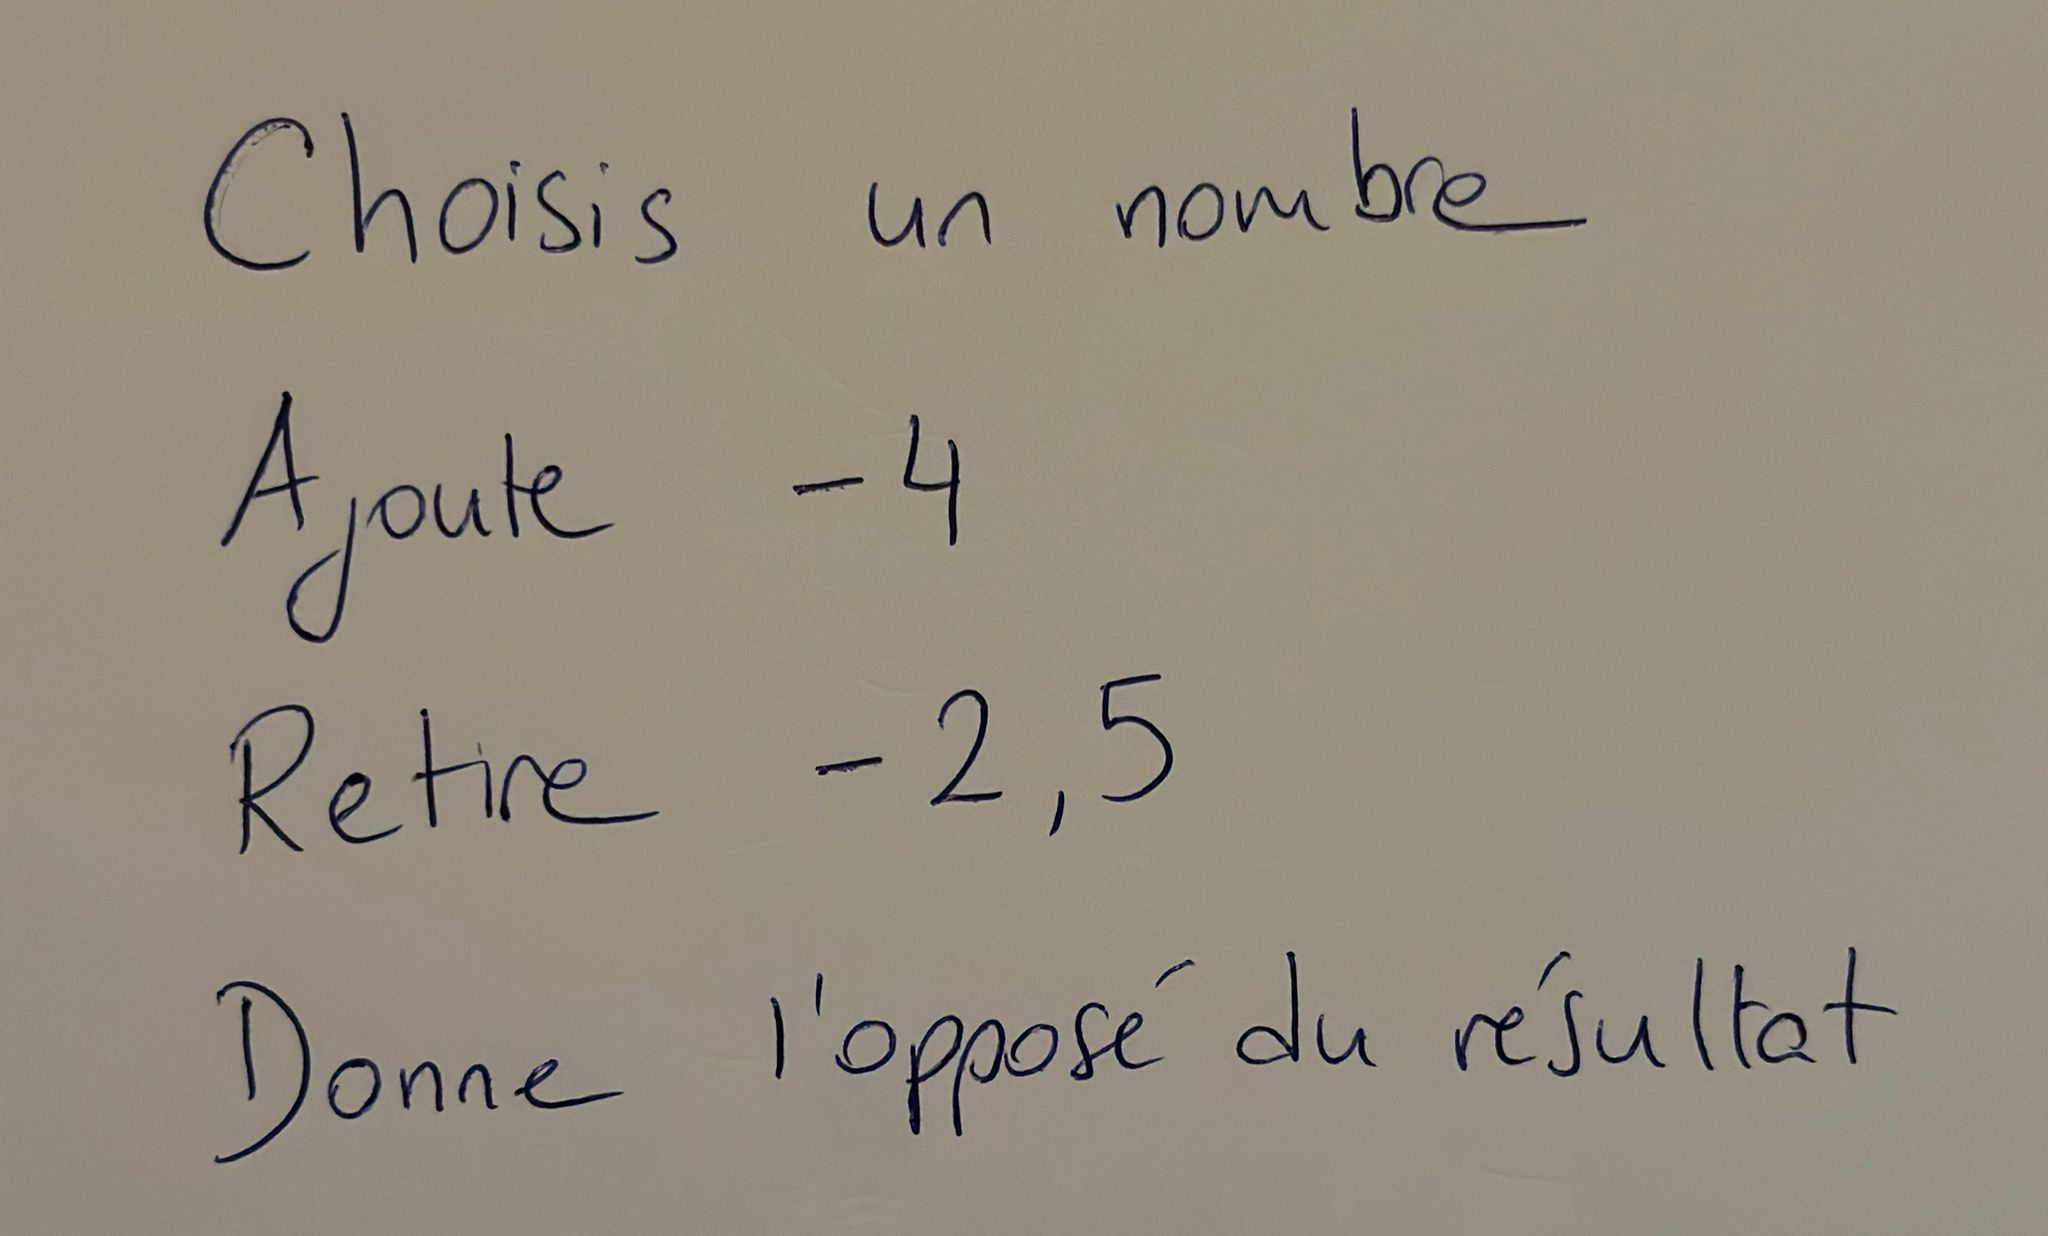 Choisis un nombre
Ajoute -4
Retire -2,5
Donne l'opposé du résultat